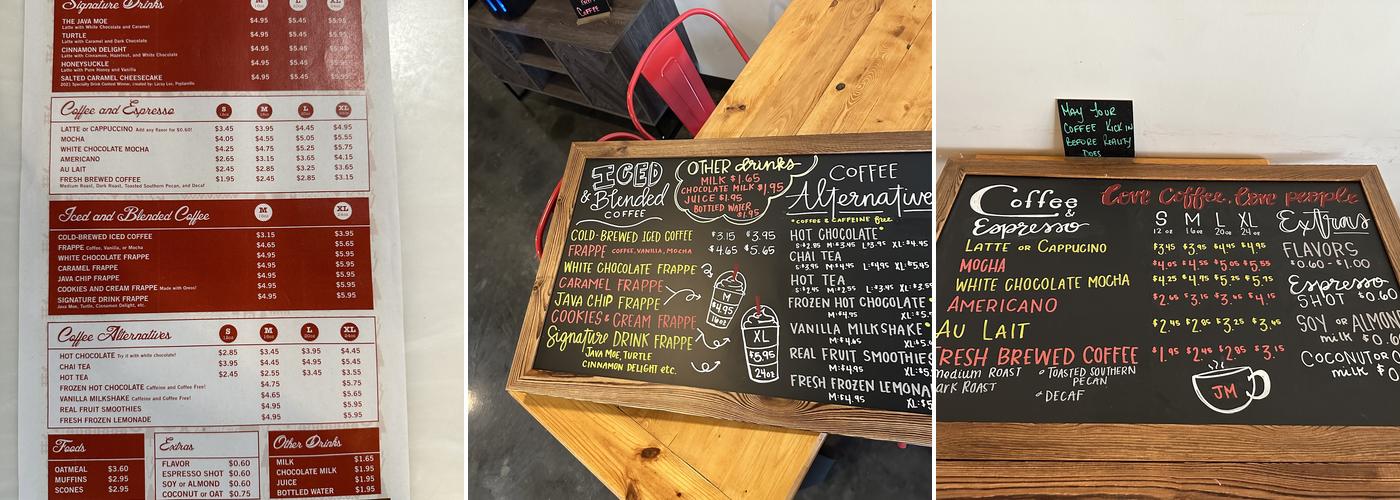 Signature Drinks
M L XL
THE JAVA MOE $4.95 $5.45 $5.95
Latte with White Chocolate and Caramel
TURTLE $4.95 $5.45 $5.95
Latte with Caramel and Dark Chocolate
CINNAMON DELIGHT $4.95 $5.45 $5.95
Latte with Cinnamon, Hazelnut, and White Chocolate
HONEYSUCKLE $4.95 $5.45 $5.95
Latte with Pure Honey and Vanilla
SALTED CARAMEL CHEESECAKE $4.95 $5.45 $5.95
Coffee and Espresso S M L XL
LATTE or CAPPUCCINO Add any flavor for $0.60! $3.45 $3.95 $4.45 $4.95
MOCHA $4.05 $4.55 $5.05 $5.55
WHITE CHOCOLATE MOCHA $4.25 $4.75 $5.25 $5.75
AMERICANO $2.65 $3.15 $3.65 $4.15
AU LAIT $2.45 $2.85 $3.25 $3.65
FRESH BREWED COFFEE $1.95 $2.45 $2.85 $3.15
Medium Roast, Dark Roast, Toasted Southern Pecan, and Decaf
Iced and Blended Coffee M XL
COLD-BREWED ICED COFFEE $3.15 $3.95
FRAPPE Coffee, Vanilla, or Mocha $4.65 $5.65
WHITE CHOCOLATE FRAPPE $4.95 $5.95
CARAMEL FRAPPE $4.95 $5.95
JAVA CHIP FRAPPE $4.95 $5.95
COOKIES AND CREAM FRAPPE Made with Oreo! $4.95 $5.95
SIGNATURE DRINK FRAPPE $4.95 $5.95
Java Moe, Turtle, Cinnamon Delight, etc.
Coffee Alternatives S M L XL
HOT CHOCOLATE Try it with white chocolate! $2.85 $3.45 $3.95 $4.45
CHAI TEA $3.95 $4.45 $4.95 $5.45
HOT TEA $2.45 $2.55 $3.45 $3.55
FROZEN HOT CHOCOLATE Caffeine and Coffee Free! $4.75 $5.75
VANILLA MILKSHAKE Caffeine and Coffee Free! $4.65 $5.65
REAL FRUIT SMOOTHIES $4.95 $5.95
FRESH FROZEN LEMONADE $4.95 $5.95
Foods
OATMEAL $3.60
MUFFINS $2.95
SCONES $2.95
Extras
FLAVOR $0.60
ESPRESSO SHOT $0.60
SOY or ALMOND $0.60
COCONUT or OAT $0.75
Other Drinks
MILK $1.65
CHOCOLATE MILK $1.95
JUICE $1.95
BOTTLED WATER $1.95
Coffee
ICED
& Blended
COFFEE
OTHER drinks
MILK $1.65
CHOCOLATE MILK $1.95
JUICE $1.95
BOTTLED WATER
$1.95
COLD-BREWED ICED COFFEE $3.15 $3.95
FRAPPE COFFEE, VANILLA, MOCHA $4.65 $5.65
WHITE CHOCOLATE FRAPPE
CARAMEL FRAPPE
JAVA CHIP FRAPPE
COOKIES & CREAM FRAPPE
Signature DRINK FRAPPE
JAVA MOE, TURTLE
CINNAMON DELIGHT etc.
M
$4.95
16oz
XL
$5.95
24oz
COFFEE
Alternative
*COFFEE & CAFFEINE free
HOT CHOCOLATE*
S:$2.85 M:$3.45 L:$3.95 XL:$4.45
CHAI TEA
S:$3.95 M:$4.45 L:$4.95 XL:$5.45
HOT TEA
FROZEN HOT CHOCOLATE*
VANILLA MILKSHAKE*
M:$4.65
REAL FRUIT SMOOTHIES
M:$4.95
FRESH FROZEN LEMONA
M:$4.95 XL:$5
MAY YOUR
COFFEE KICK IN
BEFORE REALITY
DOES
Coffee
&
Espresso
Love Coffee, love people
S M L XL
12 oz 16oz 20oz 24oz
LATTE OR CAPPUCINO $3.45 $3.95 $4.45 $4.95
MOCHA $4.05 $4.55 $5.05 $5.55
WHITE CHOCOLATE MOCHA $4.25 $4.75 $5.25 $5.75
AMERICANO $2.65 $3.15 $3.65 $4.15
AU LAIT $2.45 $2.85 $3.25 $3.65
RESH BREWED COFFEE $1.95 $2.45 $2.85 $3.15
medium ROAST
ARK ROAST
TOASTED SOUTHERN
PECAN
DECAF
JM
Extras
FLAVORS
$0.60-$1.00
Espresso
SHOT $0.60
SOY OR ALMON
milk $0.6
COCONUT OR O
milk $0.